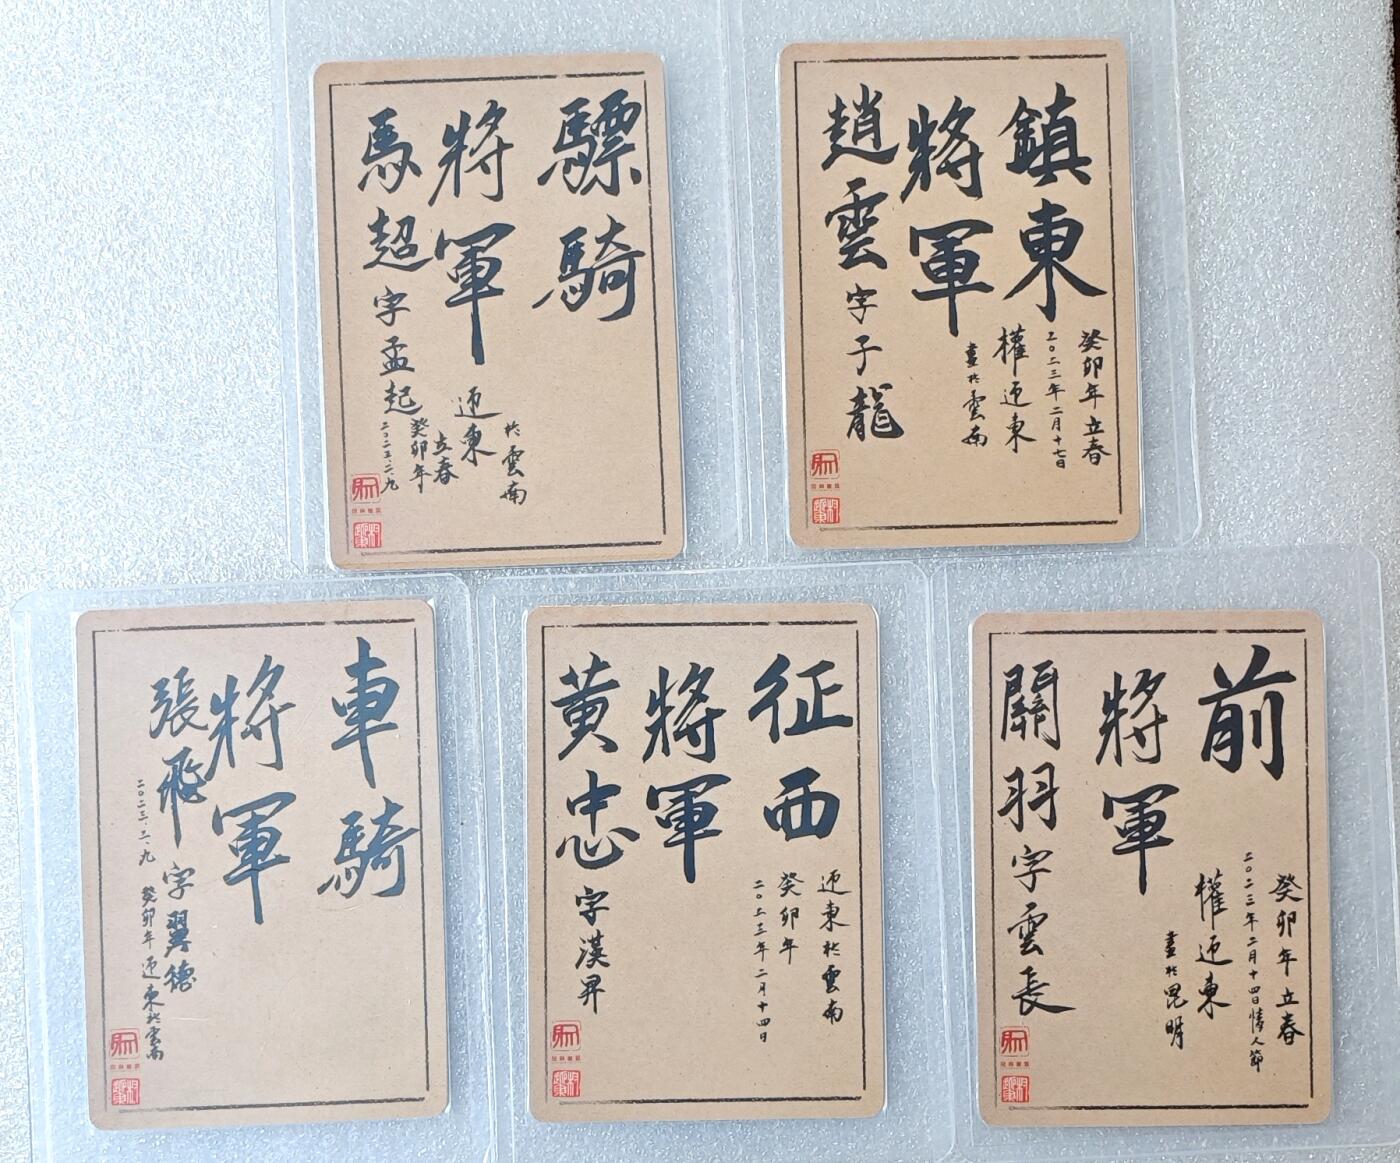 驃騎
將軍
馬超字孟起
於雲南
迎東
立春
癸卯年
二〇二三.二.九
鎮東
將軍
趙雲字子龍
癸卯年立春
二〇二三年二月十七日
權迎東
畫於雲南
車騎
將軍
張飛字翼德
二〇二三.二.九
癸卯年迎東於雲南
征西
將軍
黃忠字漢昇
迎東於雲南
癸卯年
二〇二三年二月十四日
前
將軍
關羽字雲長
癸卯年立春
二〇二三年二月十四日情人節
權迎東
畫於昆明